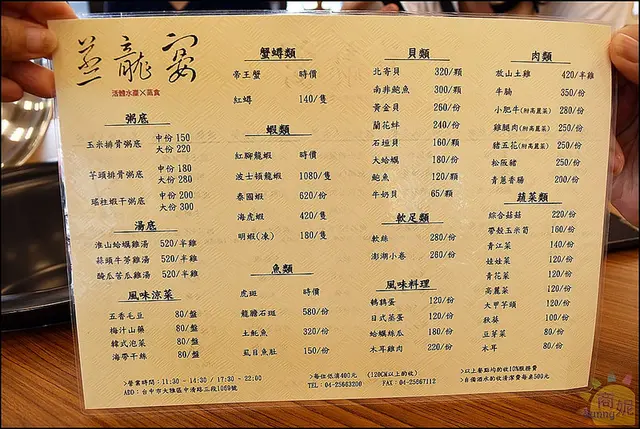 蒸龍宴
活體水產×蒸食
粥底
玉米排骨粥底 中份 150
大份 220
芋頭排骨粥底 中份 180
大份 280
瑤柱蝦干粥底 中份 200
大份 300
湯底
淮山蛤蠣雞湯 520/半雞
蒜頭牛蒡雞湯 520/半雞
醃瓜苦瓜雞湯 520/半雞
風味涼菜
五香毛豆 80/盤
梅汁山藥 80/盤
韓式泡菜 80/盤
海帶干絲 80/盤
蟹蟳類
帝王蟹 時價
紅蟳 140/隻
蝦類
紅腳龍蝦 時價
波士頓龍蝦 1080/隻
泰國蝦 620/份
海虎蝦 420/隻
明蝦(凍) 180/隻
魚類
虎斑 時價
龍膽石斑 580/份
土魠魚 320/份
虱目魚肚 150/份
貝類
北寄貝 320/顆
南非鮑魚 300/顆
黃金貝 260/份
蘭花蚌 240/份
石垣貝 160/顆
大蛤蠣 180/份
鮑魚 120/顆
牛奶貝 65/顆
軟足類
軟絲 280/份
澎湖小卷 260/份
風味料理
鵪鶉蛋 120/份
日式蒸蛋 120/份
蛤蠣絲瓜 180/份
木耳雞肉 220/份
肉類
放山土雞 420/半雞
牛腩 350/份
小肥牛(附高麗菜) 280/份
雞腿肉(附高麗菜) 250/份
豬五花(附高麗菜) 250/份
松阪豬 250/份
青蔥香腸 200/份
蔬菜類
綜合菇菇 220/份
帶殼玉米筍 160/份
青江菜 140/份
娃娃菜 120/份
青花菜 120/份
高麗菜 120/份
大甲芋頭 120/份
秋葵 100/份
豆芽菜 80/份
木耳 80/份
>營業時間：11:30 - 14:30 / 17:30 - 22:00
ADD：台中市大雅區中清路三段1069號
>每位低消400元 (120CM以上酌收)
TEL：04-25663200 FAX：04-25667112
>以上餐點均酌收10%服務費
>自備酒水酌收清潔費每桌500元